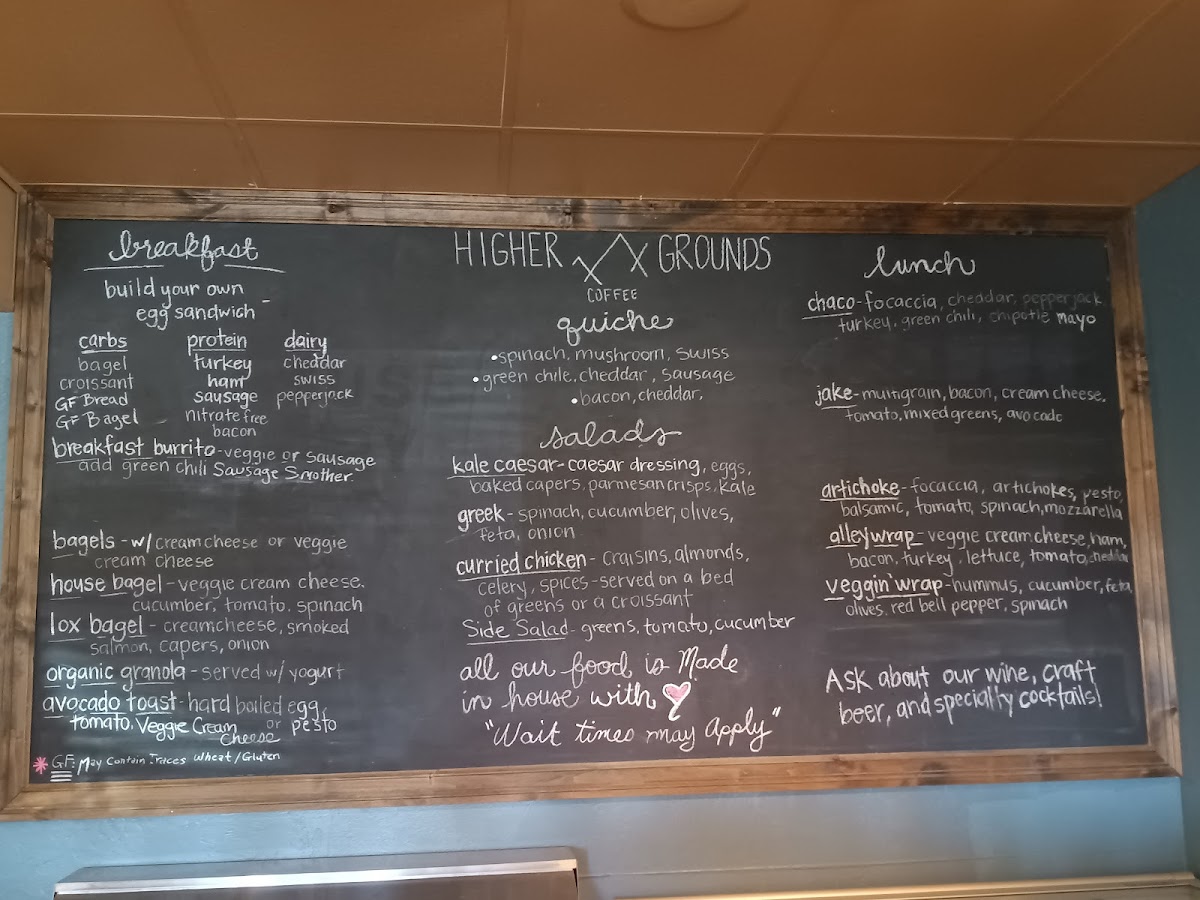 breakfast
build your own
egg sandwich -
carbs protein dairy
bagel turkey cheddar
croissant ham swiss
GF Bread sausage pepperjack
GF Bagel nitrate free
bacon
breakfast burrito - veggie or sausage
add green chili Sausage Smother.
bagels - w/ cream cheese or veggie
cream cheese
house bagel - veggie cream cheese.
cucumber, tomato, spinach
lox bagel - creamcheese, smoked
salmon, capers, onion
organic granola - served w/ yogurt
avocado toast - hard boiled egg,
tomato, Veggie Cream or pesto
Cheese
* GF: May Contain Traces Wheat/Gluten
HIGHER GROUNDS
COFFEE
quiche
• spinach, mushroom, swiss
• green chile, cheddar, sausage
• bacon, cheddar,
salads
kale caesar - caesar dressing, eggs,
baked capers, parmesan crisps, kale
greek - spinach, cucumber, olives,
feta, onion
curried chicken - craisins, almonds,
celery, spices - served on a bed
of greens or a croissant
Side Salad - greens, tomato, cucumber
all our food is Made
in house with ♡
"Wait times may Apply"
lunch
chaco - focaccia, cheddar, pepperjack
turkey, green chili, chipotle mayo
jake - multigrain, bacon, cream cheese,
tomato, mixed greens, avocado
artichoke - focaccia, artichokes, pesto,
balsamic, tomato, spinach, mozzarella
alley wrap - veggie cream cheese, ham,
bacon, turkey, lettuce, tomato, cheddar
veggin' wrap - hummus, cucumber, feta,
olives, red bell pepper, spinach
Ask about our wine, craft
beer, and specialty cocktails!